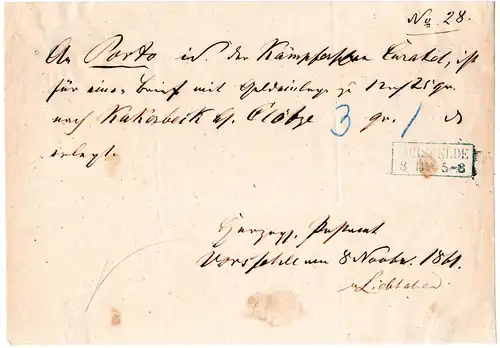 No 28.
An Porto in der Kämpferschen Curatel, ist
für einen Brief mit Geldeinlage
nach Kakerbeck bei Clötze 3 gr. 1
erlegt.
VORSFELDE
8 5-8
Herzogl. Postamt
Vorsfelde am 8 Novbr. 1861.